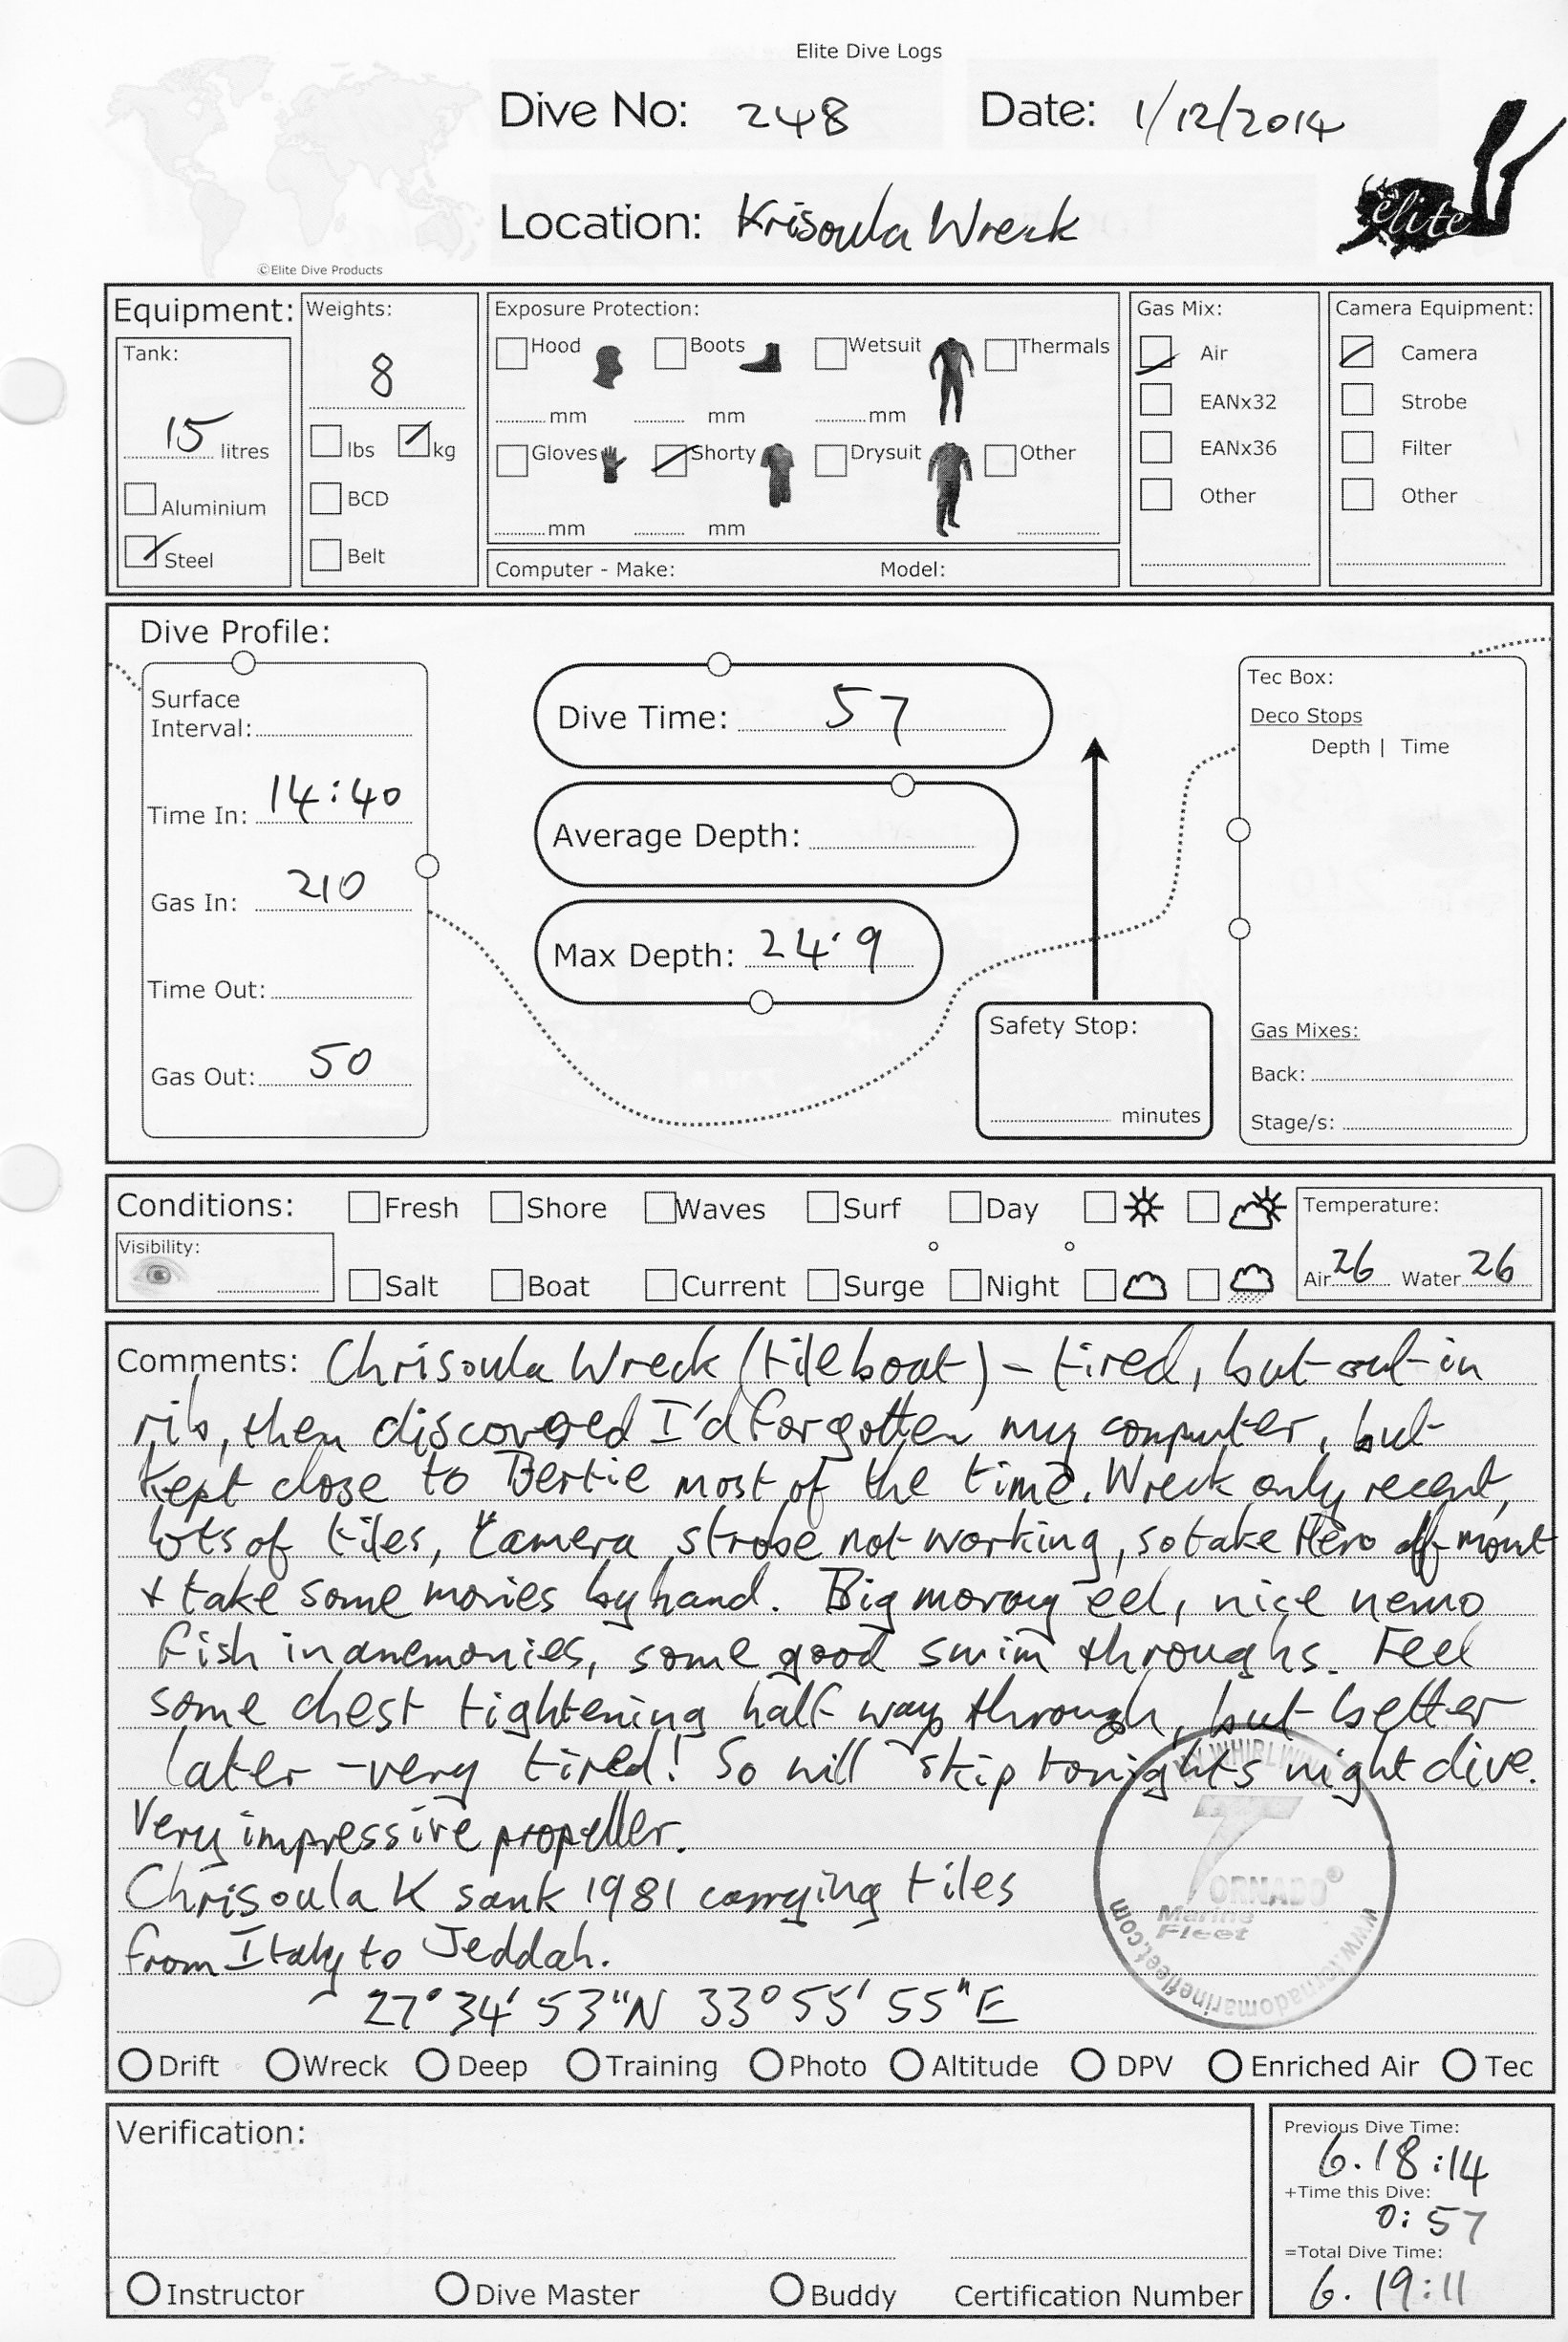 Elite Dive Logs
Dive No: 248 Date: 1/12/2014
Location: Krisoula Wreck
elite
©Elite Dive Products
Equipment:
Tank:
15 litres
Aluminium
Steel
Weights:
8
lbs kg
BCD
Belt
Exposure Protection:
Hood Boots Wetsuit Thermals
mm mm mm
Gloves Shorty Drysuit Other
mm mm
Computer - Make: Model:
Gas Mix:
Air
EANx32
EANx36
Other
Camera Equipment:
Camera
Strobe
Filter
Other
Dive Profile:
Surface
Interval:
Time In: 14:40
Gas In: 210
Time Out:
Gas Out: 50
Dive Time: 57
Average Depth:
Max Depth: 24.9
Safety Stop:
minutes
Tec Box:
Deco Stops
Depth | Time
Gas Mixes:
Back:
Stage/s:
Conditions: Fresh Shore Waves Surf Day
Visibility:
Salt Boat Current Surge Night
Temperature:
Air 26 Water 26
Comments: Chrisoula Wreck (tile boat) - tired, but out in
rib, then discovered I'd forgotten my computer, but
kept close to Bertie most of the time. Wreck only recent,
lots of tiles, Camera strobe not working, so take Hero off mount
+ take some movies by hand. Big moray eel, nice nemo
fish in anemonies, some good swim throughs. Feel
some chest tightening half way through, but better
later - very tired! So will skip tonight's night dive.
Very impressive propeller.
Chrisoula K sank 1981 carrying tiles
from Italy to Jeddah.
27° 34' 53"N 33° 55' 55"E
WHIRLWIND
TORNADO®
Marine
Fleet
www.tornadomarinefleet.com
Drift Wreck Deep Training Photo Altitude DPV Enriched Air Tec
Verification:
Instructor Dive Master Buddy Certification Number
Previous Dive Time:
6.18:14
+Time this Dive:
0:57
=Total Dive Time:
6.19:11